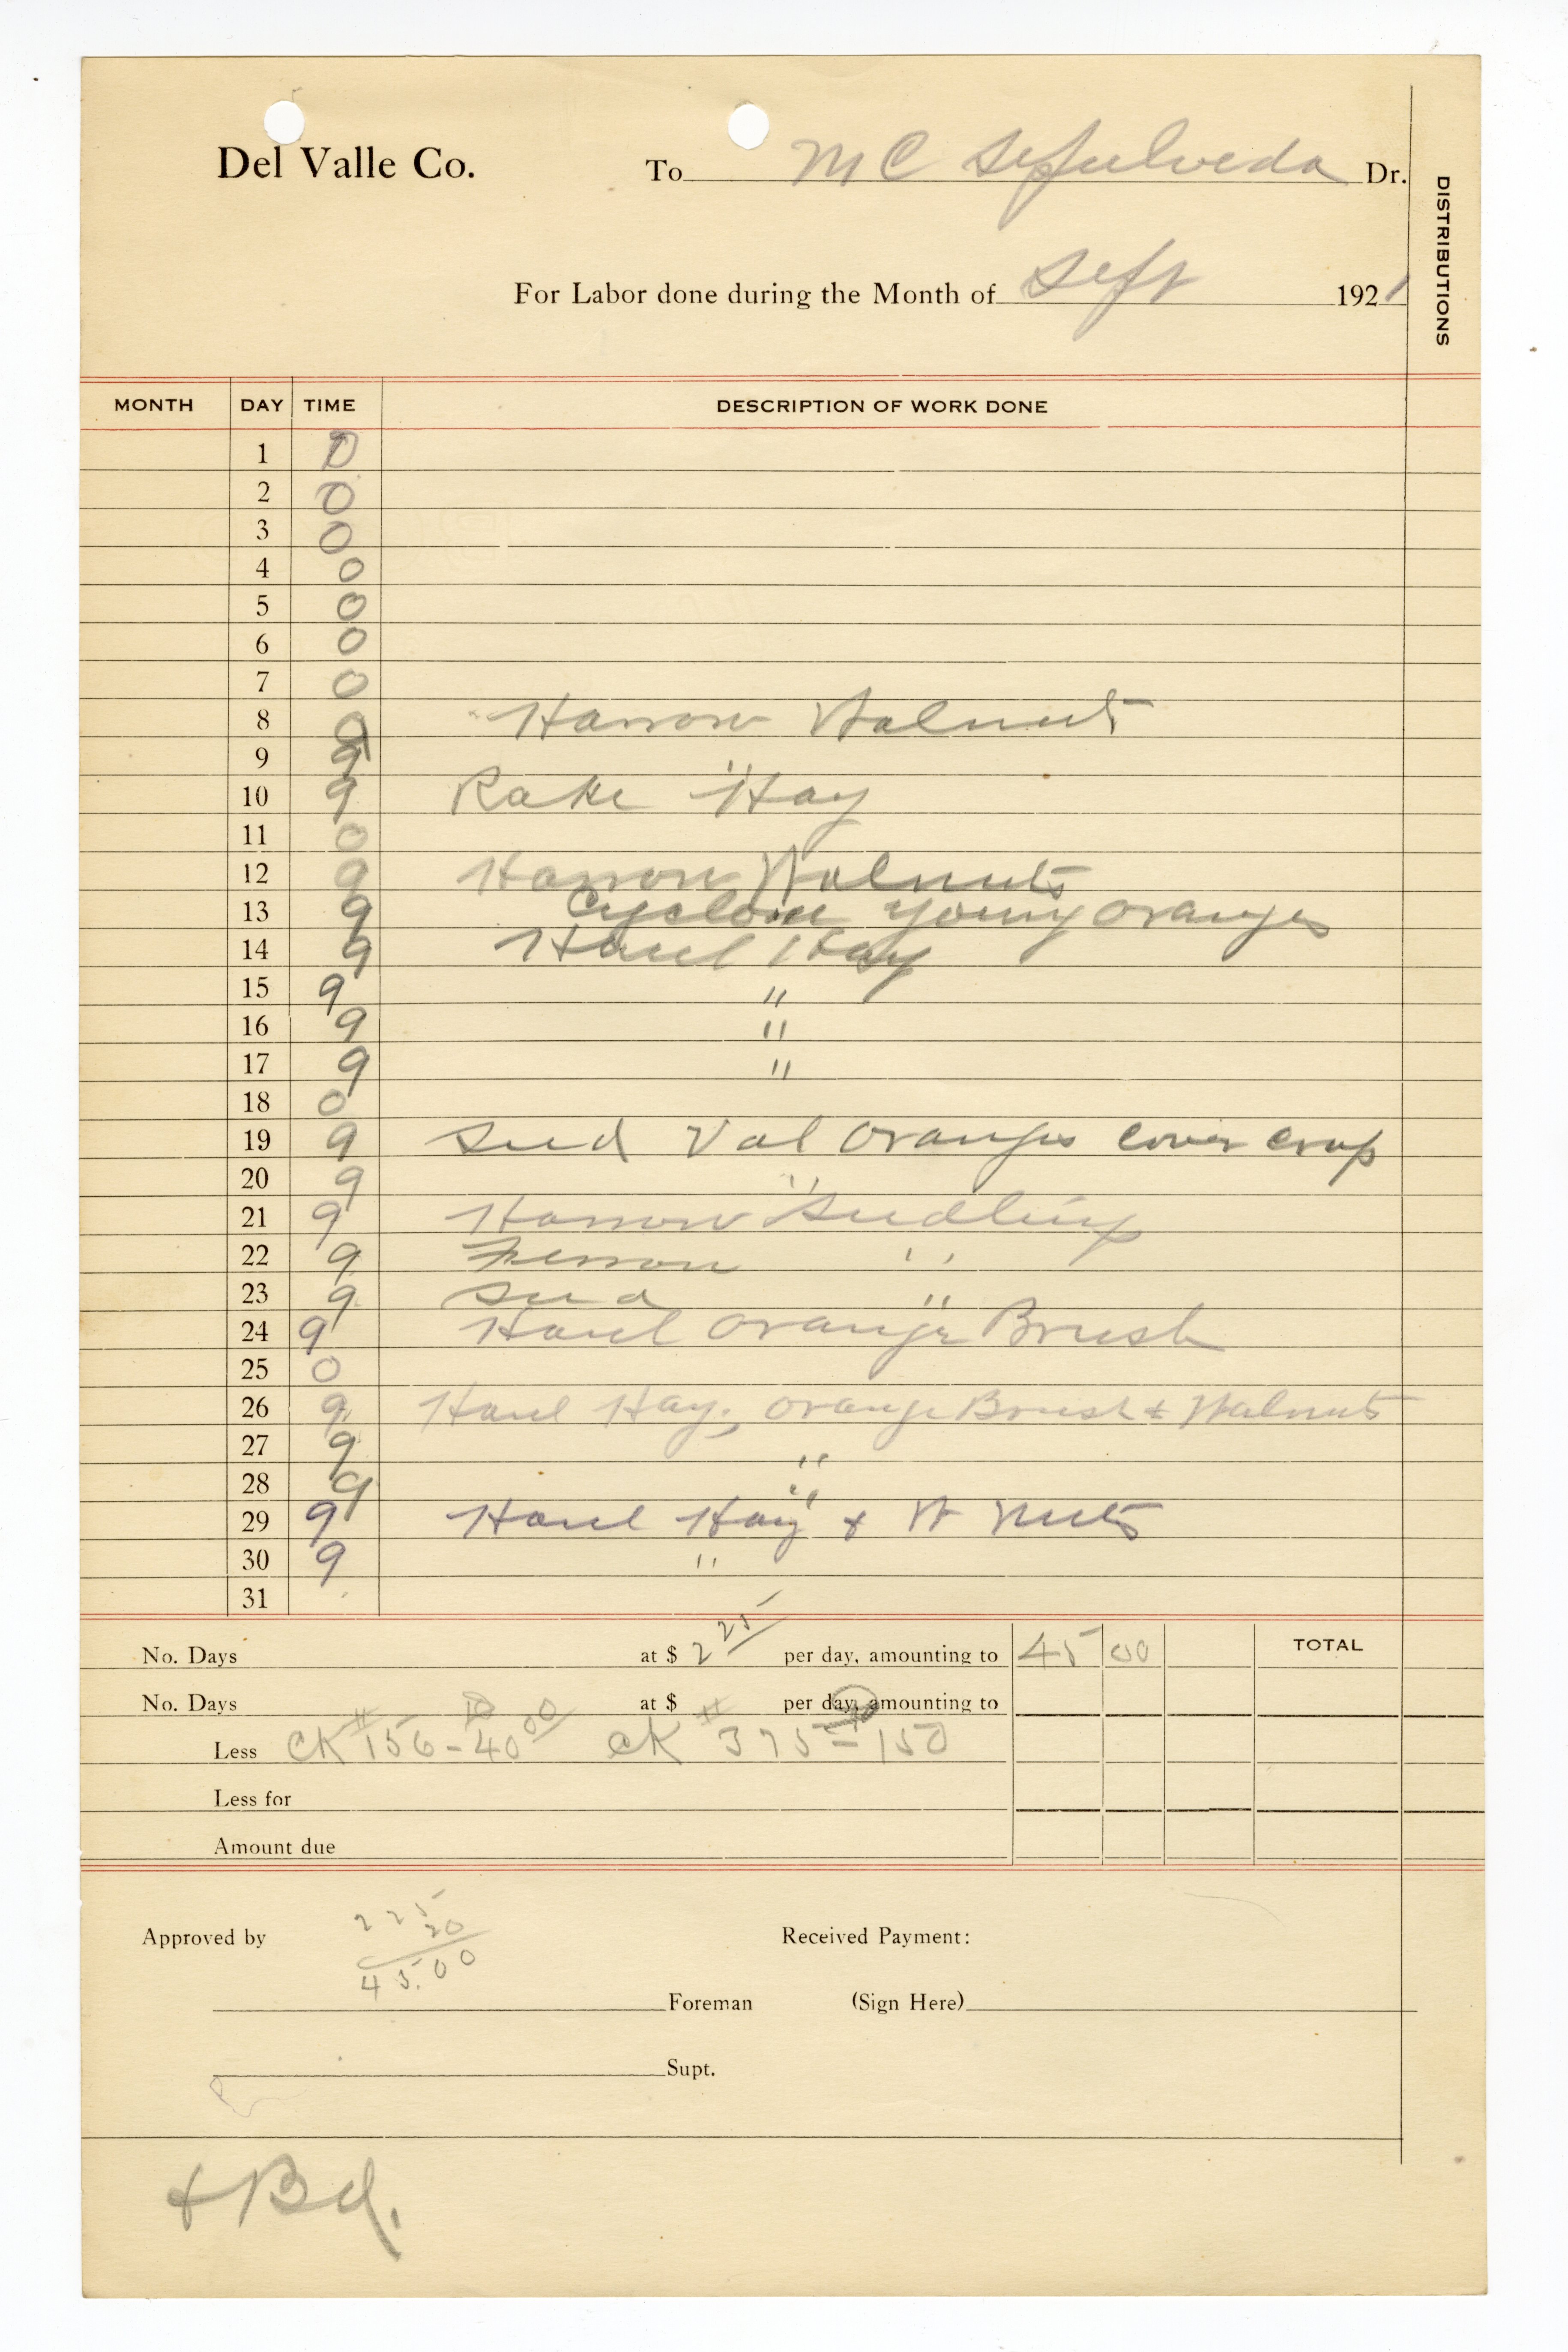 Del Valle Co. To M C Sepulveda Dr.
DISTRIBUTIONS
For Labor done during the Month of Sept 1921
MONTH DAY TIME DESCRIPTION OF WORK DONE
1 0
2 0
3 0
4 0
5 0
6 0
7 0
8 9 Harrow Walnuts
9 9 "
10 9 Rake Hay
11 0
12 9 Harrow Walnuts
13 9 Cyclone young oranges
14 9 Haul Hay
15 9 "
16 9 "
17 9 "
18 0
19 9 Seed Val Oranges cover crop
20 9 "
21 9 Harrow Seedlings
22 9 Furrow "
23 9 Seed "
24 9 Haul Orange Brush
25 0
26 9 Haul Hay, Orange Brush & Walnuts
27 9 "
28 9 "
29 9 Haul Hay & W Nuts
30 9 "
31
No. Days at $ 2 25 per day, amounting to 45 00 TOTAL
No. Days at $ per day, amounting to
Less CK # 156 - 40 00 CK # 375 = 150
Less for
Amount due
2 25
20
Approved by Received Payment:
45.00
Foreman (Sign Here)
Supt.
+ Bd.